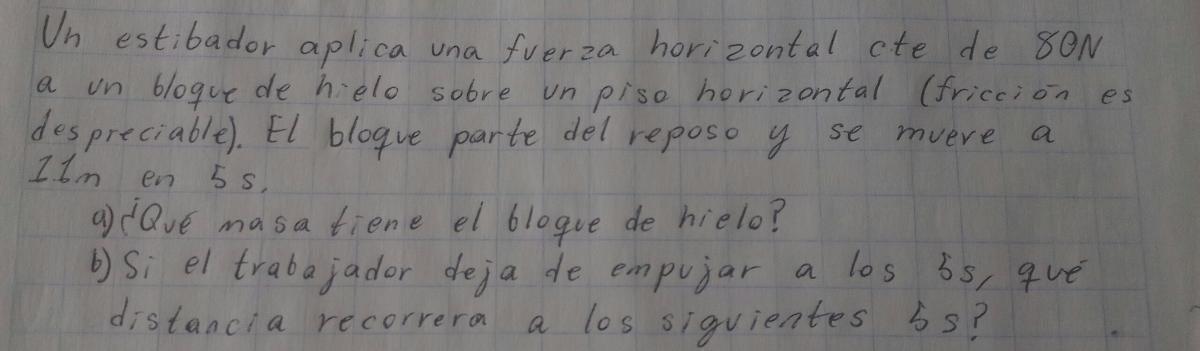 Un estibador aplica una fuerza horizontal cte de 80N
a un bloque de hielo sobre un piso horizontal (fricción es
despreciable). El bloque parte del reposo y se mueve a
11m en 5 s.
a) ¿Qué masa tiene el bloque de hielo?
b) Si el trabajador deja de empujar a los 5s, qué
distancia recorrera a los siguientes 5 s?